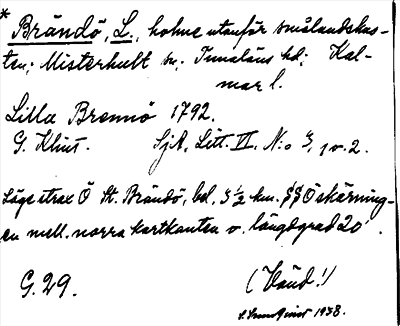 * Brändö, L., holme utanför smålandskus-
ten; Misterhult sn; Tunaläns hd; Kal-
mar l.
Lilla Brennö 1792.
G. Klint. SjK, Litt. VI. N:o 3, 1 v. 2.
Läge strax Ö St. Brändö, bel. 3 1/2 km. Ö skärning-
en mell. norra kartkanten o. längdgrad 20'.
G. 29. (Vänd!)
1938.